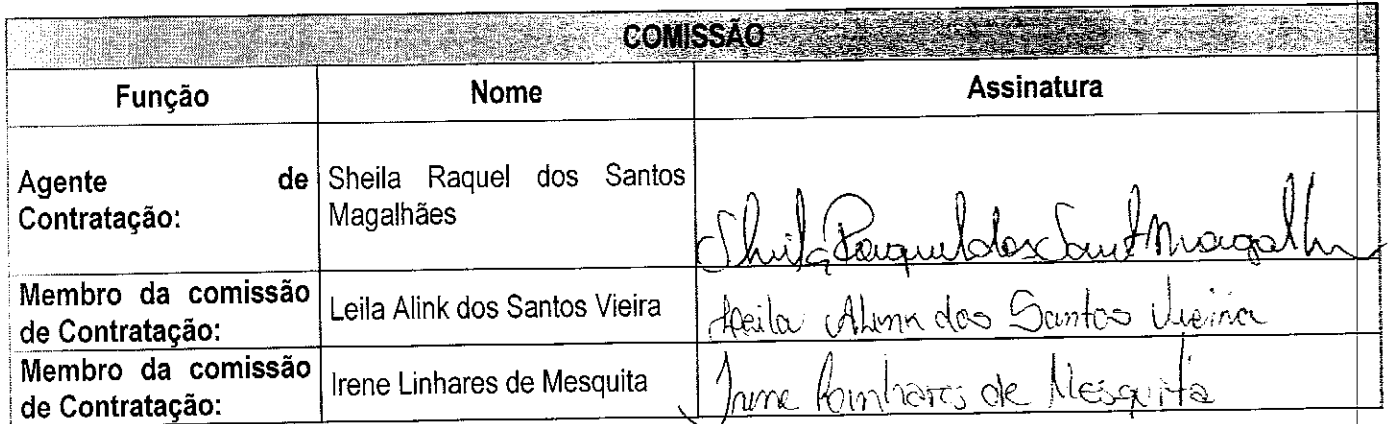 COMISSÃO
Função Nome Assinatura
Agente de Contratação: Sheila Raquel dos Santos Magalhães Sheila Raquel dos Sant Magalh
Membro da comissão de Contratação: Leila Alink dos Santos Vieira Leila Alink dos Santos Vieira
Membro da comissão de Contratação: Irene Linhares de Mesquita Irene Linhares de Mesquita